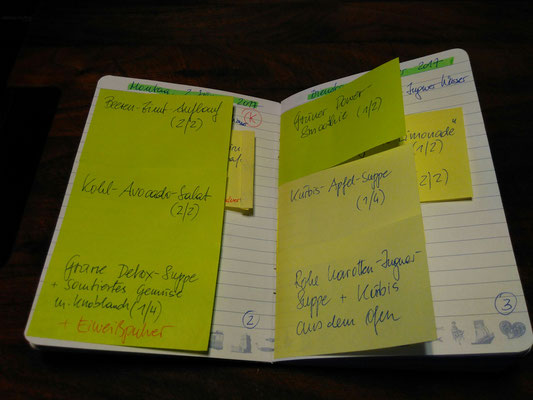 Montag
2017
Beeren-Zimt-Auflauf
(2/2)
K
Kohl-Avocado-Salat
(2/2)
Grüne Detox-Suppe
+ Sautiertes Gemüse
m. Knoblauch (1/4)
+ Eiweißpulver
2
Dienst
2017
Ingwer Wasser
Grüner Power-
Smoothie (1/2)
limonade"
(1/2)
(2/2)
Kürbis-Apfel-Suppe
(1/4)
Rohe Karotten-Ingwer-
Suppe + Kürbis
aus dem Ofen
3